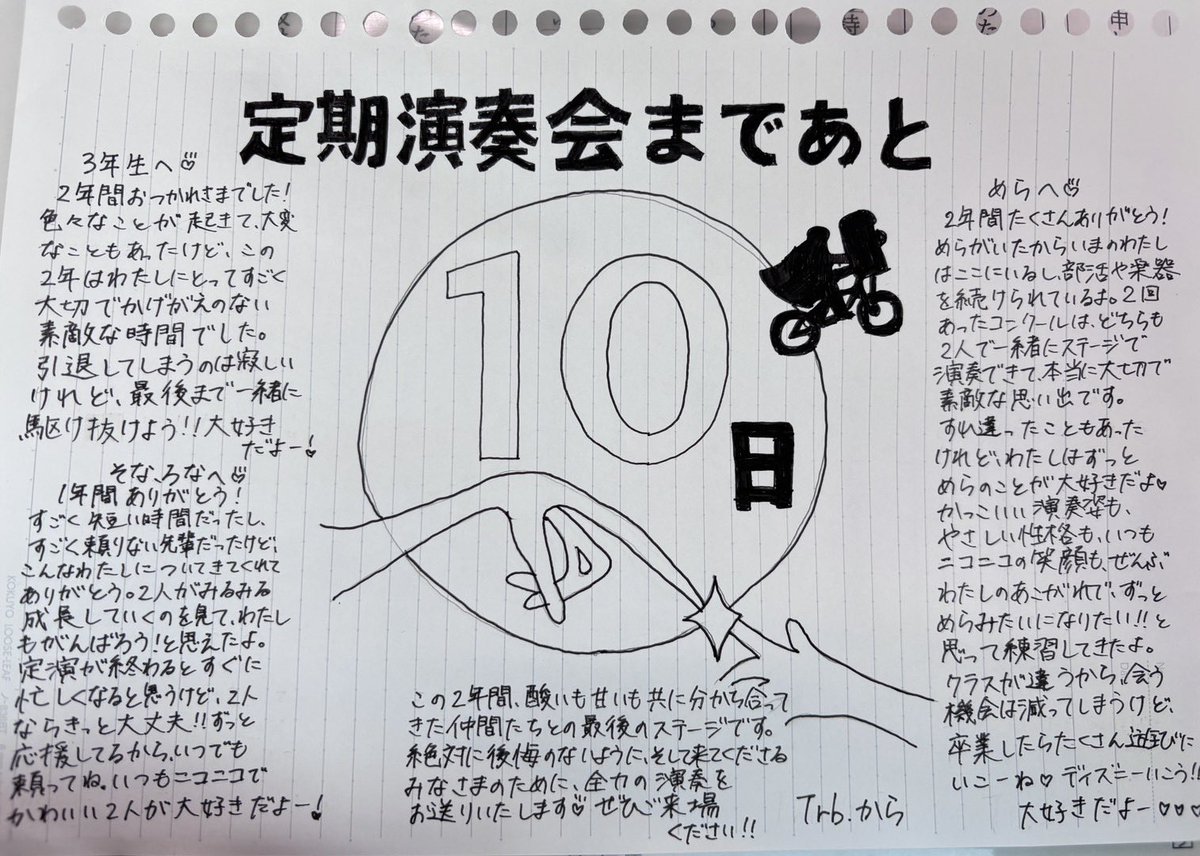 定期演奏会まであと
10
日
3年生へ♡
2年間おつかれさまでした!
色々なことが起きて、大変
なこともあったけど、この
2年はわたしにとってすごく
大切でかけがえのない
素敵な時間でした。
引退してしまうのは寂しい
けれど、最後まで一緒に
駆け抜けよう!!大好き
だよー!
そな、ろなへ♡
1年間ありがとう!
すごく短い時間だったし、
すごく頼りない先輩だったけど、
こんなわたしについてきてくれて
ありがとう。2人がみるみる
成長していくのを見て、わたし
もがんばろう!と思えたよ。
定演が終わるとすぐに
忙しくなると思うけど、2人
ならきっと大丈夫!!ずっと
応援してるから、いつでも
頼ってね。いつもニコニコで
かわいい2人が大好きだよー!
この2年間、酸いも甘いも共に分かち合って
きた仲間たちとの最後のステージです。
絶対に後悔のないように、そして来てくださる
みなさまのために、全力の演奏を
お送りいたします♡ぜひご来場
ください!!
Trb.から
めらへ♡
2年間たくさんありがとう!
めらがいたからいまのわたし
はここにいるし、部活や楽器
を続けられているよ。2回
あったコンクールは、どちらも
2人で一緒にステージで
演奏できて、本当に大切で
素敵な思い出です。
すれ違ったこともあった
けれど、わたしはずっと
めらのことが大好きだよ♥
かっこいい演奏姿も、
やさしい性格も、いつも
ニコニコの笑顔も、ぜんぶ
わたしのあこがれで、ずっと
めらみたいになりたい!!と
思って練習してきたよ。
クラスが違うから、会う
機会は減ってしまうけど、
卒業したらたくさん遊びに
いこーね♥ディズニーいこう!!
大好きだよー♡♡♡
KOKUYO LOOSE-LEAF